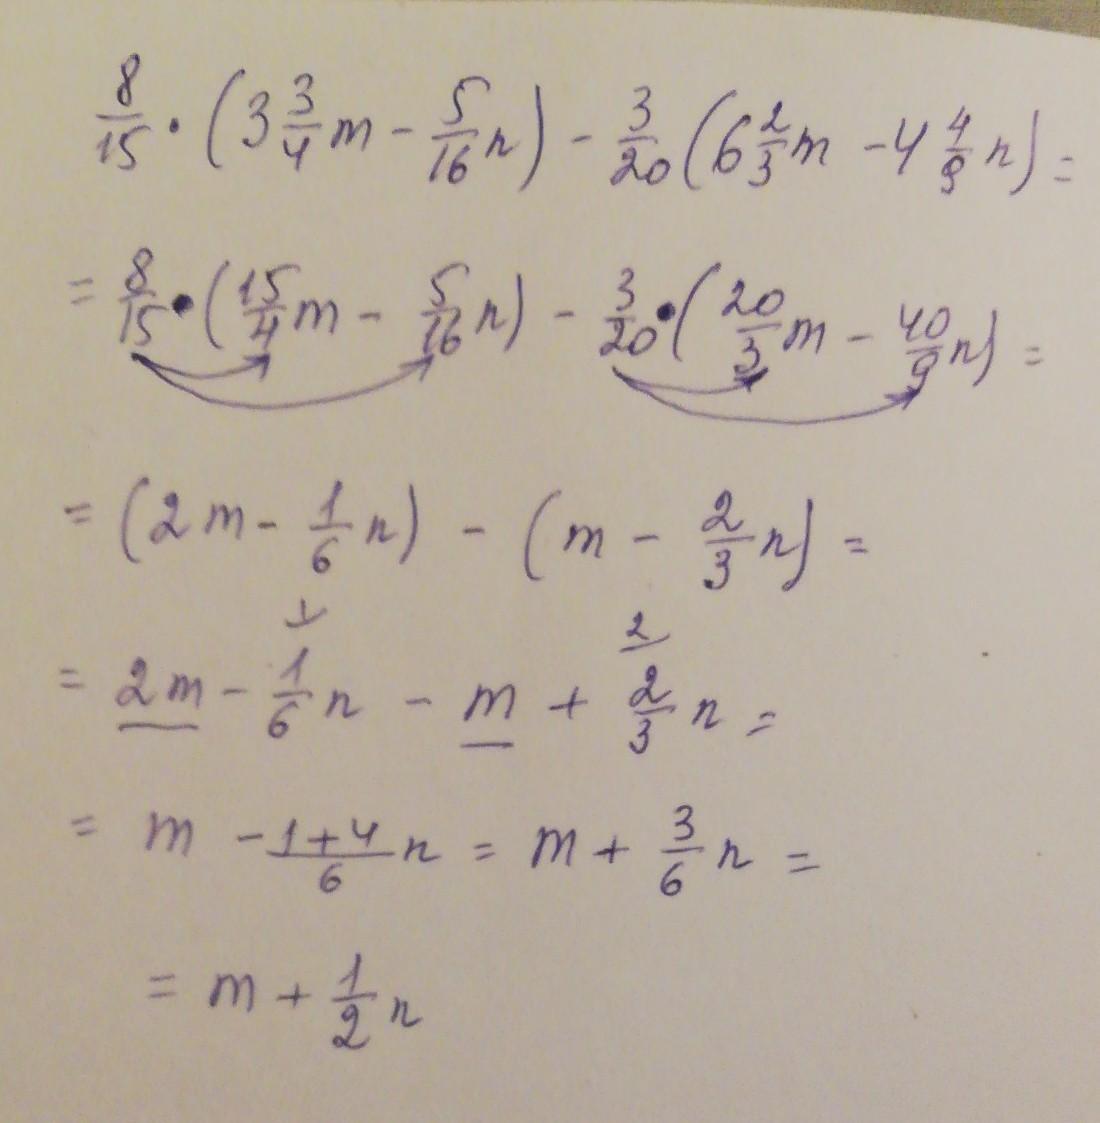 8/15 · (3 3/4 m - 5/16 n) - 3/20 (6 2/3 m - 4 4/9 n) =
= 8/15 · (15/4 m - 5/16 n) - 3/20 · (20/3 m - 40/9 n) =
= (2m - 1/6 n) - (m - 2/3 n) =
1 2
= 2m - 1/6 n - m + 2/3 n =
= m - 1+4/6 n = m + 3/6 n =
= m + 1/2 n